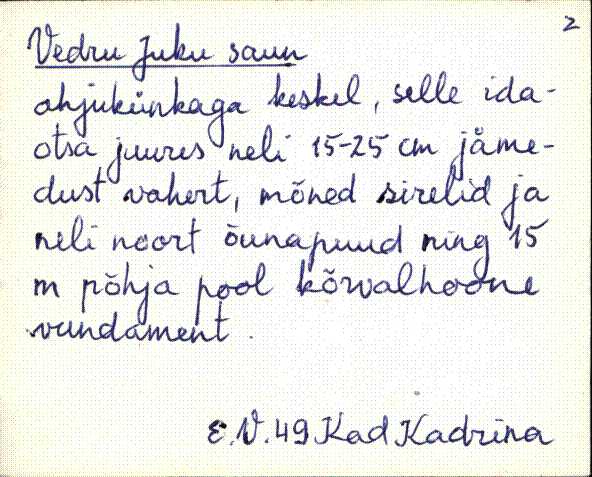 2
Vedru Juku saun
ahjukünkaga keskel, selle ida-
otsa juures neli 15-25 cm jäme-
dust vahert, mõned sirelid ja
neli noort õunapuud ning 15
m põhja pool kõrvalhoone
vundament.
E.V. 49 Kad Kadrina